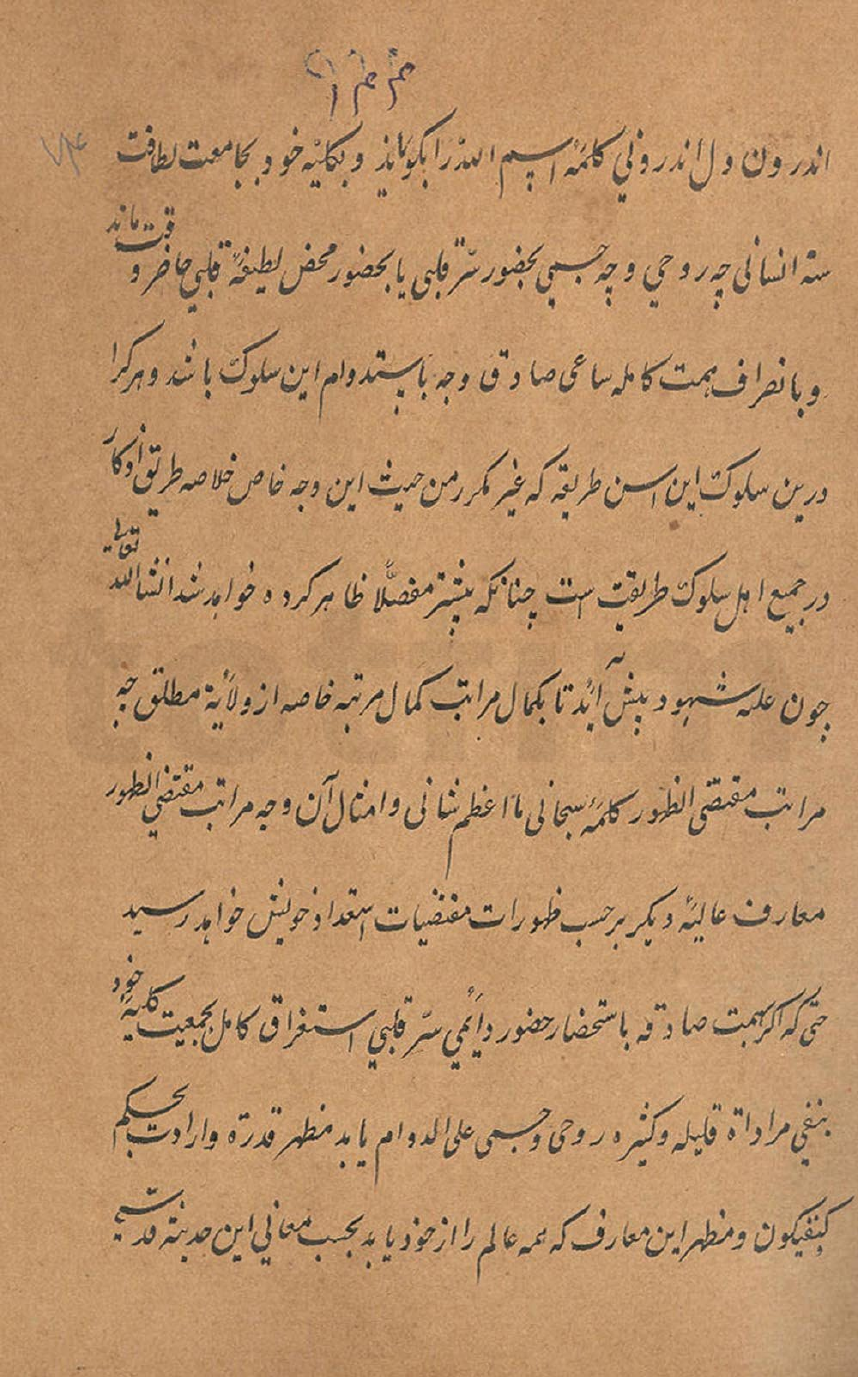 اندرون دل اندرونی کلمهٔ اسم الله را بکویاند و بکلیه خود بجامعت لطافت
ستهٔ انسانی چه روحی و چه جسمی بحضور سرّ قلبی یا بحضور محض لطیفهٔ قلبی حاضر و قوت ماند
و بانصراف همت کامله ساعی صادق وجه باستدوام این سلوک باشد و هرکرا
درین سلوک این اسن طریقه که غیر مکرر من حیث این وجه خاص خلاصه طریق اذکار
در جمیع اهل سلوک طریقت است چنانکه پیشتر مفصلاً ظاهر کرده خواهد شد انشاالله تعالی
چون غلبه شهود پیش آید تا بکمال مراتب کمال مرتبه خاصه از ولایة مطلق چه
مراتب مقتضی الظهور کلمهٔ سبحانی ما اعظم شانی و امثال آن و چه مراتب مقتضی الظهور
معارف عالیهٔ دیکر برحسب ظهورات مقتضیات استعداد خویش خواهد رسید
حتی که اکر بهمت صادقه باستحضار حضور دائمی سرّ قلبی استغراق کامل بجمعیت کلیهٔ خود
بنفی مراداة قلیله و کثیره روحی و جسمی علی الدوام یابد مظهر قدرة و ارادت بحکم
کن فیکون و مظهر این معارف که همه عالم را از خود یابد بحسب معانی این حدیثة قدسیه